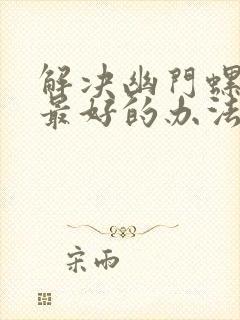 解决幽門螺
最好的办法
宋雨